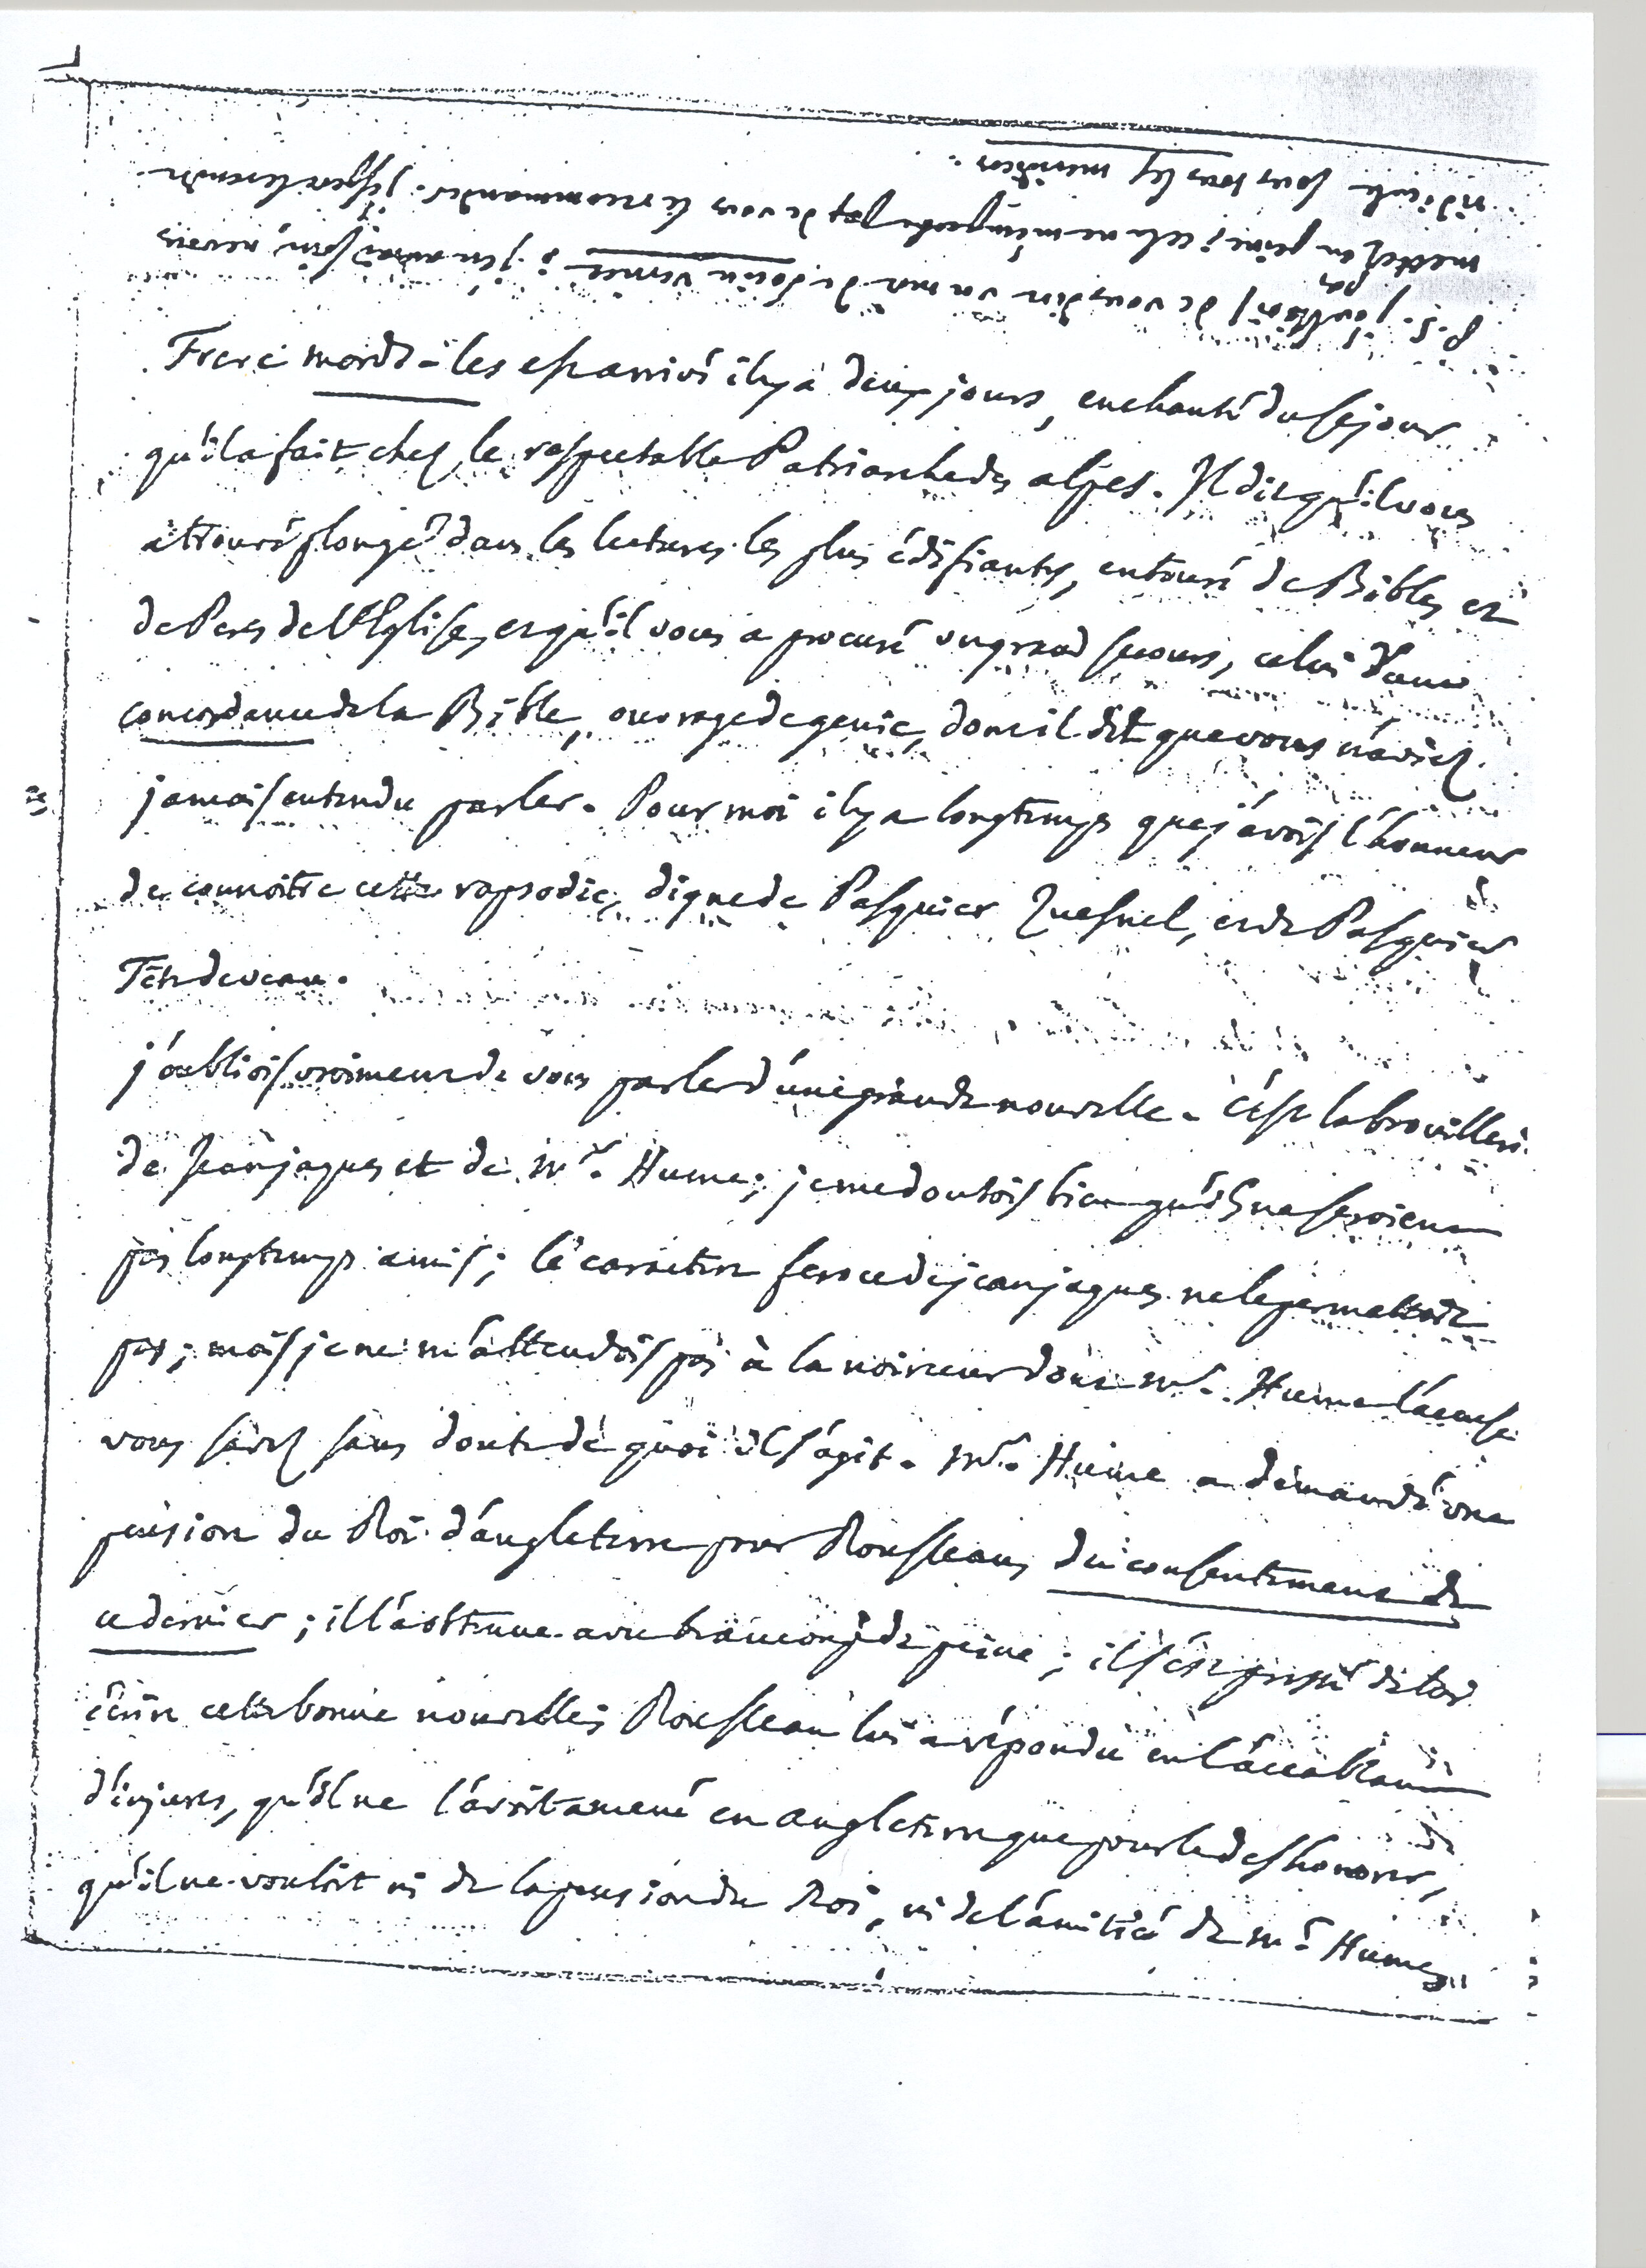 P.S. j'oubliois de vous dire un mot de Jacob Vernet; j'en aurai soin, ne vous
mettez pas en peine; cela ne m'empeche pas de vous le recommander. j'espere le rendre
ridicule sous tous les
Frere mords-les est arrivé il y a deux jours, enchanté du sejour
qu'il a fait chez le respectable Patriarche des alpes. Il dit qu'il vous
a trouvé plongé dans les lectures les plus édifiantes, entouré de Bibles et
de Peres de l'Eglise, et qu'il vous a procuré un grand secours, celui d'une
concordance de la Bible, ouvrage de genie, dont il dit que vous n'aviez
jamais entendu parler. Pour moi il y a longtemps que j'avois l'honneur
de connoitre cette rapsodie, digne de Pasquier Quesnel, et de Pasquier
Tête de veau.
j'oubliois vraiment de vous parler d'une grande nouvelle. C'est la brouillerie
de Jean jaques et de Mr. Hume; je me doutois bien qu'ils ne seroient
pas longtemps amis; le caractere feroce de jean jaques ne le permettoit
pas; mais je ne m'attendois pas à la noirceur dont Mr. Hume l'accuse
vous savez sans doute de quoi il s'agit. Mr. Hume a demandé une
pension du Roi d'angleterre pour Rousseau, du consentement de
ce dernier; il l'a obtenue avec beaucoup de peine; il s'est pressé de lui
écrire cette bonne nouvelle; Rousseau lui a répondu en l'accablant
d'injures, qu'il ne l'avoit amené en angleterre que pour le deshonorer,
qu'il ne vouloit ni de la pension du Roi, ni de l'amitié de Mr. Hume,